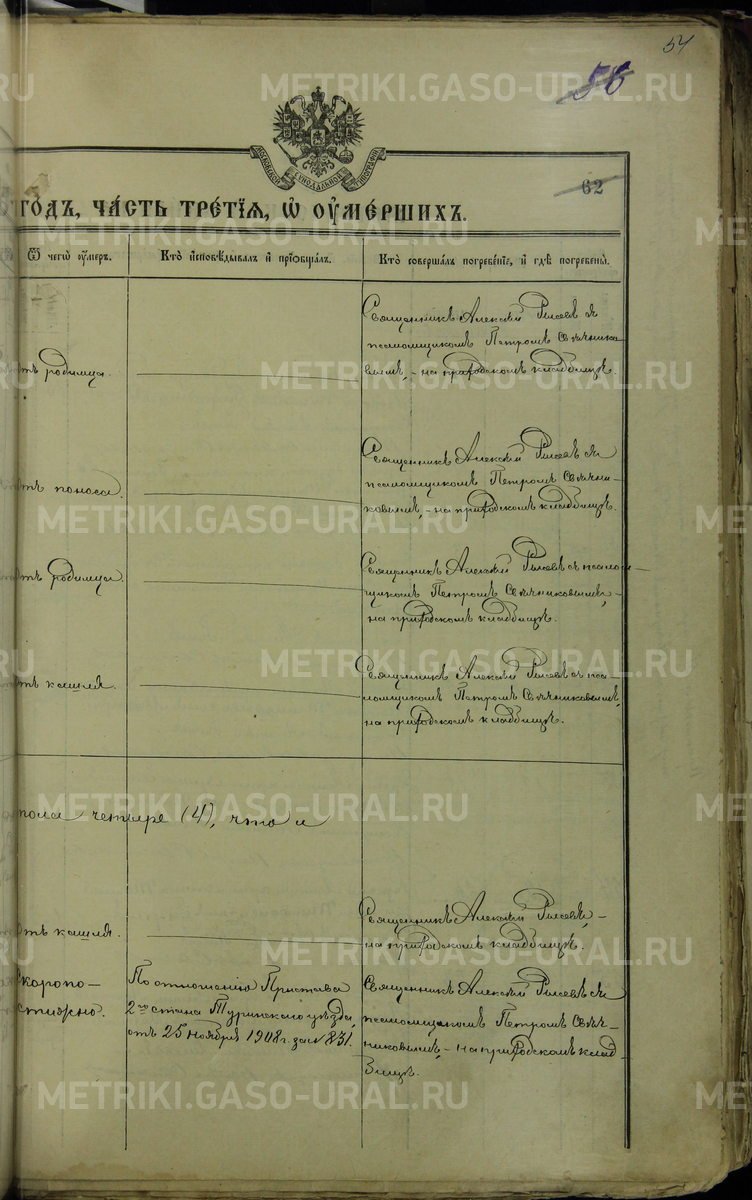 54
56
METRIKI.GASO-URAL.RU
МОСКОВСКОЙ СѴНОДАЛЬНОЙ ТИПОГРАФІИ
62
ГОДЪ, ЧА́СТЬ ТРЕ́ТІѦ, Ѡ҆ ОУ҆МЕ́РШИХЪ.
Ѿ чегѡ̀ оу҆́меръ.
Кто̀ и҆сповѣ́дывалъ и҆ прїѡбща́лъ.
Кто̀ соверша́лъ погребе́нїе, и҆ гдѣ̀ погребены̀.
отъ родимца.
Священникъ Алексѣй съ
псаломщикомъ Петромъ Свѣчнико
вымъ, - на приходскомъ кладбищѣ.
отъ поноса.
Священникъ Алексѣй съ
псаломщикомъ Петромъ Свѣчни-
ковымъ, - на приходскомъ кладбищѣ.
отъ родимца.
Священникъ Алексѣй съ псалом-
щикомъ Петромъ Свѣчниковымъ, -
на приходскомъ кладбищѣ.
отъ кашля.
Священникъ Алексѣй съ пса-
ломщикомъ Петромъ Свѣчниковымъ,
на приходскомъ кладбищѣ.
пола четыре (4), что и
отъ кашля.
Священникъ Алексѣй -
на приходскомъ кладбищѣ.
Скоропо-
стижно.
По отношенію Пристава
2го стана Туринского уѣзда,
отъ 25 ноября 1908 г. за № 831.
Священникъ Алексѣй съ
псаломщикомъ Петромъ Свѣч-
никовымъ, - на приходскомъ клад-
бищѣ.